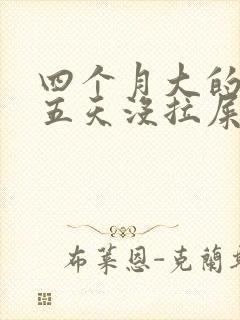 四个月大的
五天没拉屎
布莱恩-克兰